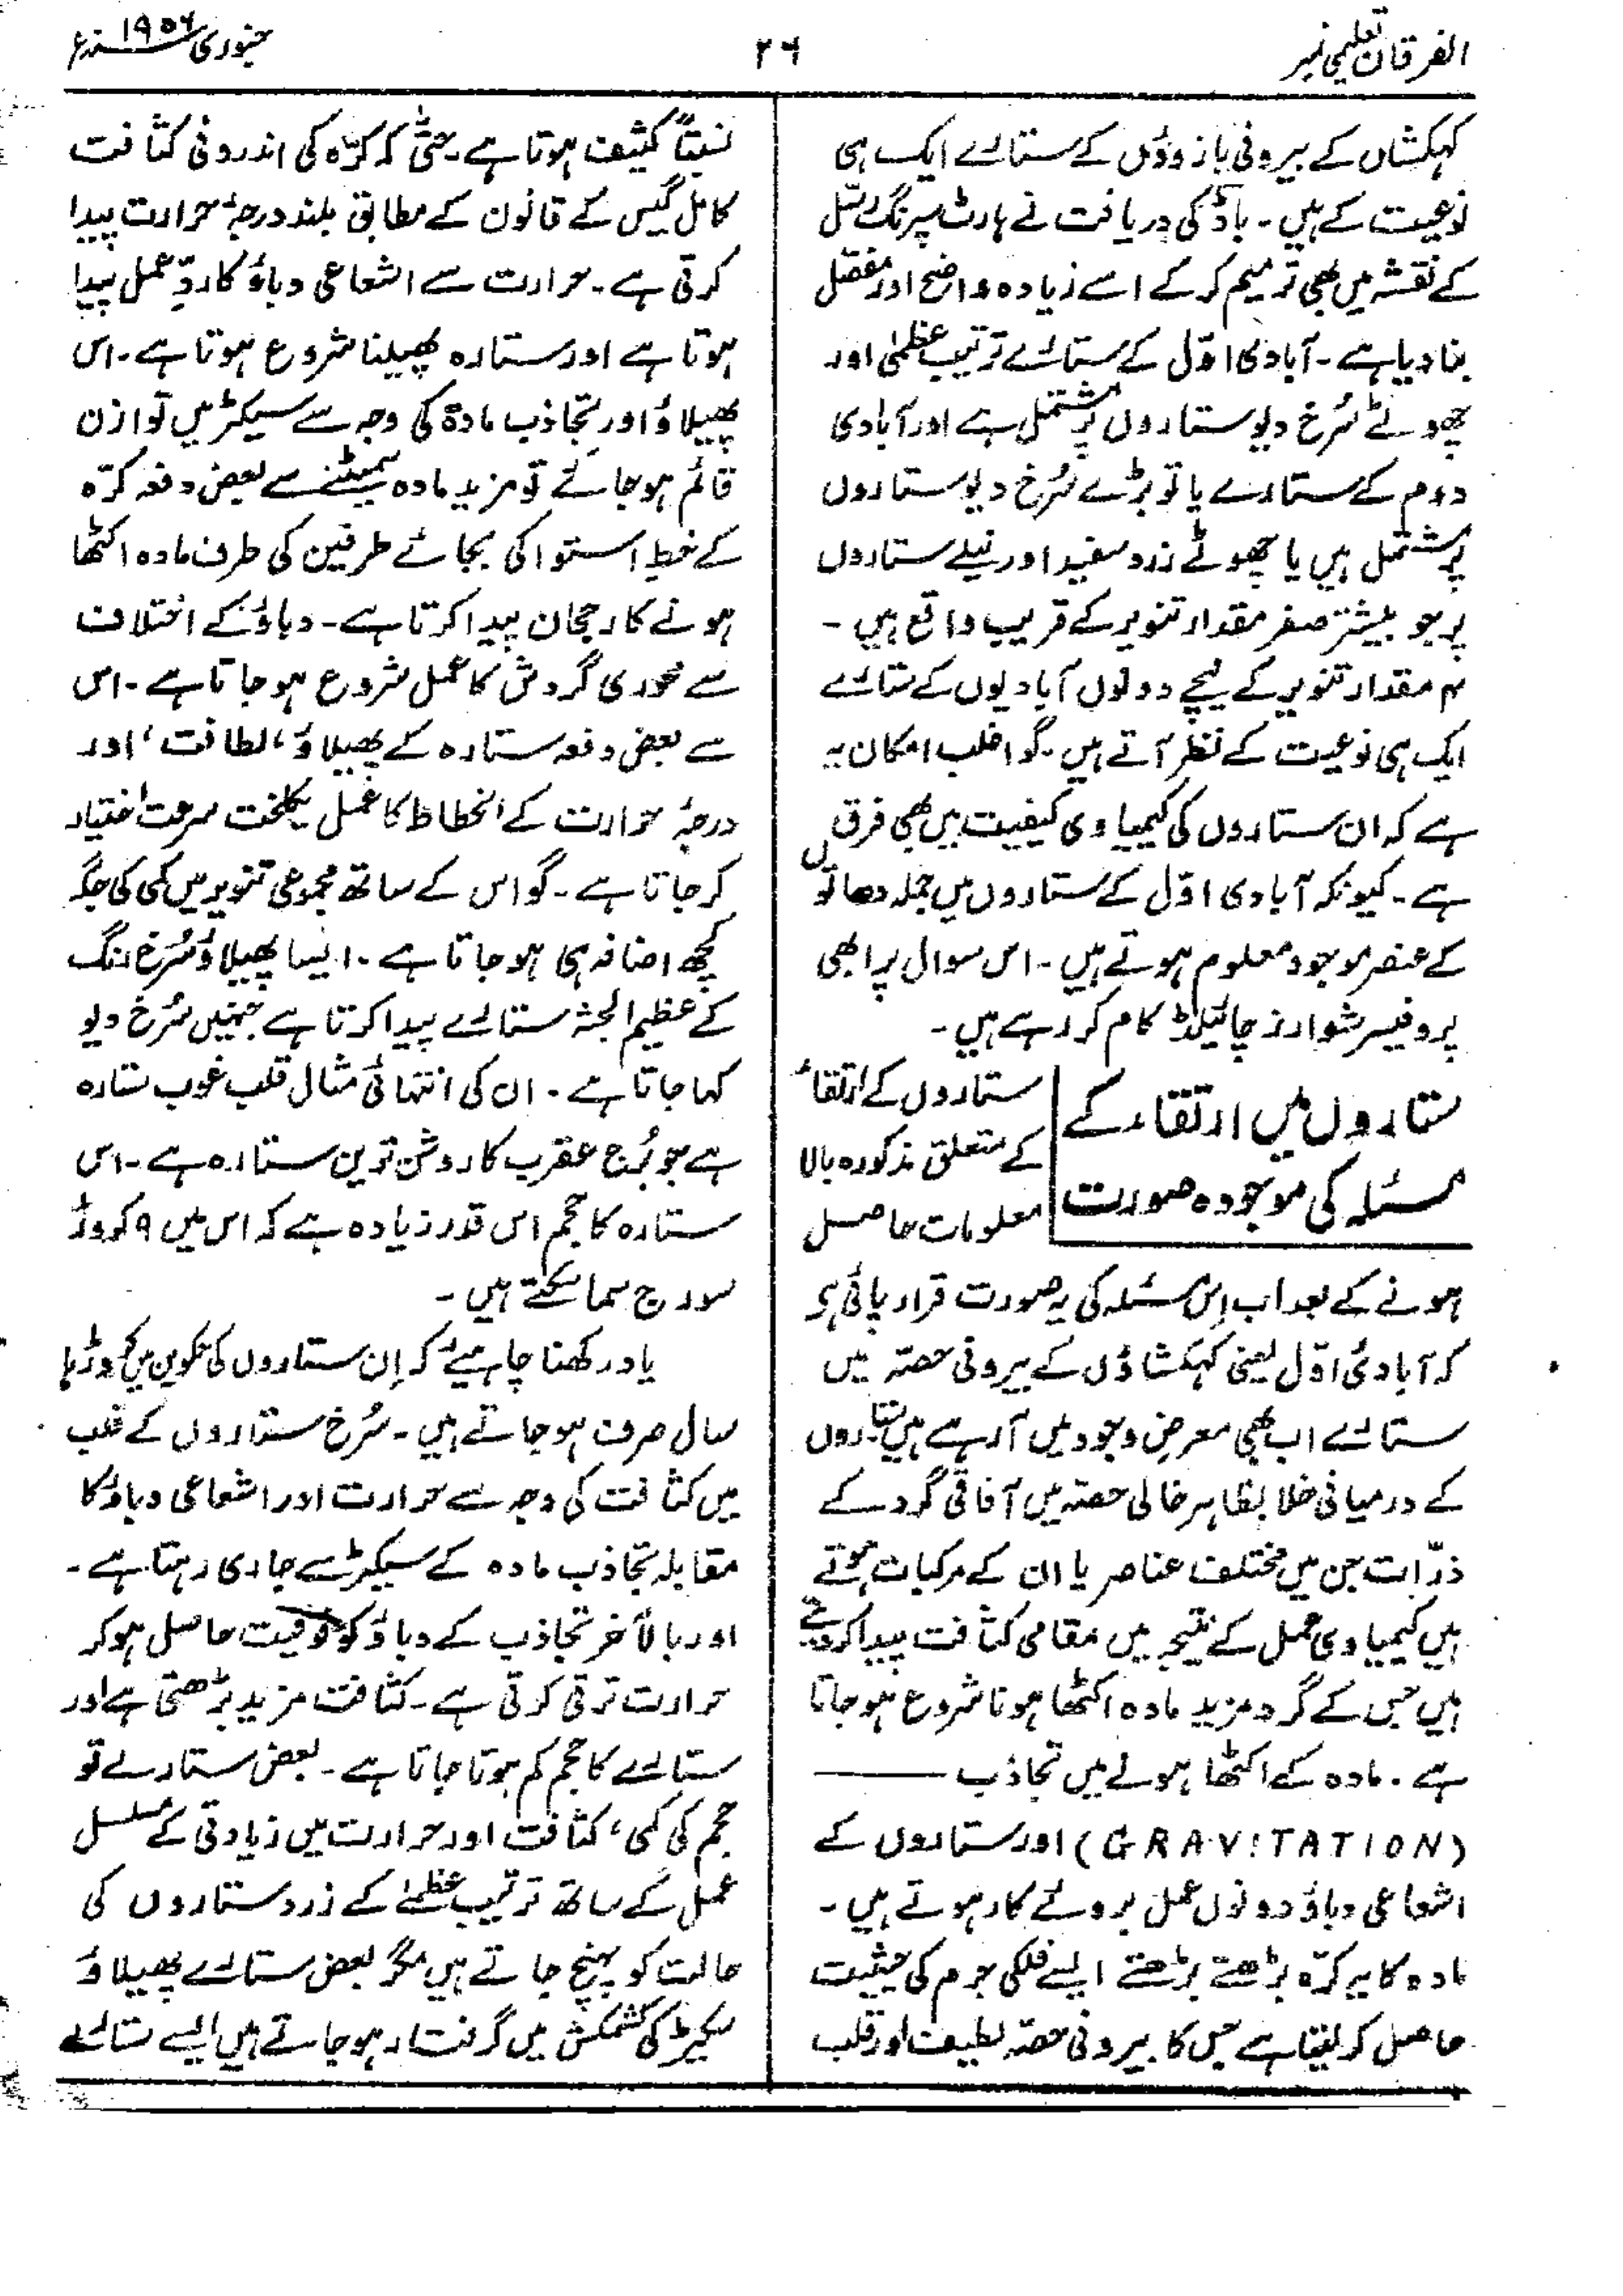 الفرقان تعلیمی نمبر
۲۶
جنوری ۱۹۵۶ء
کہکشاں کے بیرونی بازوؤں کے ستارے ایک ہی
نوعیت کے ہیں۔ باڈ کی دریافت نے ہارٹ سپرنگ رسّل
کے نقشہ میں بھی ترمیم کر کے اسے زیادہ واضح اور مفصّل
بنا دیا ہے۔ آبادی اوّل کے ستارے ترتیب عظمیٰ اور
چھوٹے سُرخ دیو ستاروں پر مشتمل ہے اور آبادی
دوم کے ستارے یا تو بڑے سُرخ دیو ستاروں
پر مشتمل ہیں یا چھوٹے زرد سفید اور نیلے ستاروں
پر جو بیشتر صفر مقدار تنویر کے قریب واقع ہیں۔
۳ مقدار تنویر کے نیچے دونوں آبادیوں کے ستارے
ایک ہی نوعیت کے نظر آتے ہیں۔ گو اغلب امکان یہ
ہے کہ ان ستاروں کی کیمیاوی کیفیت میں بھی فرق
ہے۔ کیونکہ آبادی اوّل کے ستاروں میں جملہ دھاتوں
کے عنصر موجود معلوم ہوتے ہیں۔ اس سوال پر ابھی
پروفیسر شوارز چائیلڈ کام کر رہے ہیں۔
ستاروں میں ارتقاء کے
مسئلہ کی موجودہ صورت
ستاروں کے ارتقاء
کے متعلق مذکورہ بالا
معلومات حاصل
ہونے کے بعد اب اِس مسئلہ کی یہ صورت قرار پائی ہے
کہ آبادئ اوّل یعنی کہکشاؤں کے بیرونی حصّہ میں
ستارے اب بھی معرضِ وجود میں آ رہے ہیں ستاروں
کے درمیانی خلا بظاہر خالی حصّہ میں آفاقی گرد کے
ذرّات جن میں مختلف عناصر یا ان کے مرکبات ہوتے
ہیں کیمیاوی عمل کے نتیجہ میں مقامی کثافت پیدا کر دیتے
ہیں جس کے گرد مزید مادہ اکٹھا ہونا شروع ہو جاتا
ہے۔ مادہ کے اکٹھا ہونے میں تجاذب ———
(GRAVITATION) اور ستاروں کے
اشعاعی دباؤ دونوں عمل بروئے کار ہوتے ہیں۔
مادہ کا یہ کرّہ بڑھتے بڑھتے ایسے فلکی جرم کی حیثیت
حاصل کر لیتا ہے جس کا بیرونی حصّہ لطیف اور قلب
نسبتاً کثیف ہوتا ہے۔ حتّٰی کہ کرّہ کی اندرونی کثافت
کامل گیس کے قانون کے مطابق بلند درجۂ حرارت پیدا
کرتی ہے۔ حرارت سے اشعاعی دباؤ کا ردِّ عمل پیدا
ہوتا ہے اور ستارہ پھیلنا شروع ہوتا ہے۔ اس
پھیلاؤ اور تجاذب مادہ کی وجہ سے سیکڑ میں توازن
قائم ہو جائے تو مزید مادہ سمیٹنے سے بعض دفعہ کرّہ
کے خطِ استوا کی بجائے طرفین کی طرف مادہ اکٹھا
ہونے کا رجحان پیدا کرتا ہے۔ دباؤ کے اختلاف
سے محوری گردش کا عمل شروع ہو جاتا ہے۔ اس
سے بعض دفعہ ستارہ کے پھیلاؤ، لطافت، اور
درجۂ حرارت کے انحطاط کا عمل یکلخت سرعت اختیار
کر جاتا ہے۔ گو اس کے ساتھ مجموعی تنویر میں کمی کی جگہ
کچھ اضافہ ہی ہو جاتا ہے۔ ایسا پھیلاؤ سُرخ رنگ
کے عظیم الجثہ ستارے پیدا کرتا ہے جنہیں سُرخ دیو
کہا جاتا ہے۔ ان کی انتہائی مثال قلب غوب ستارہ
ہے جو بُرج عقرب کا روشن ترین ستارہ ہے۔ اس
ستارہ کا حجم اس قدر زیادہ ہے کہ اس میں ۹ کروڑ
سورج سما سکتے ہیں۔
یاد رکھنا چاہیئے کہ اِن ستاروں کی تکوین میں کروڑہا
سال صرف ہو جاتے ہیں۔ سُرخ ستاروں کے قلب
میں کثافت کی وجہ سے حرارت اور اشعاعی دباؤ کا
مقابلہ تجاذب مادہ کے سیکڑ سے جاری رہتا ہے۔
اور بالآخر تجاذب کے دباؤ کو فوقیت حاصل ہو کر
حرارت ترقی کرتی ہے۔ کثافت مزید بڑھتی ہے اور
ستارے کا حجم کم ہوتا جاتا ہے۔ بعض ستارے تو
حجم کی کمی، کثافت اور حرارت میں زیادتی کے مسلسل
عمل کے ساتھ ترتیب عظمےٰ کے زرد ستاروں کی
حالت کو پہنچ جاتے ہیں مگر بعض ستارے پھیلاؤ
سکیڑ کی کشمکش میں گرفتار ہو جاتے ہیں ایسے ستارے